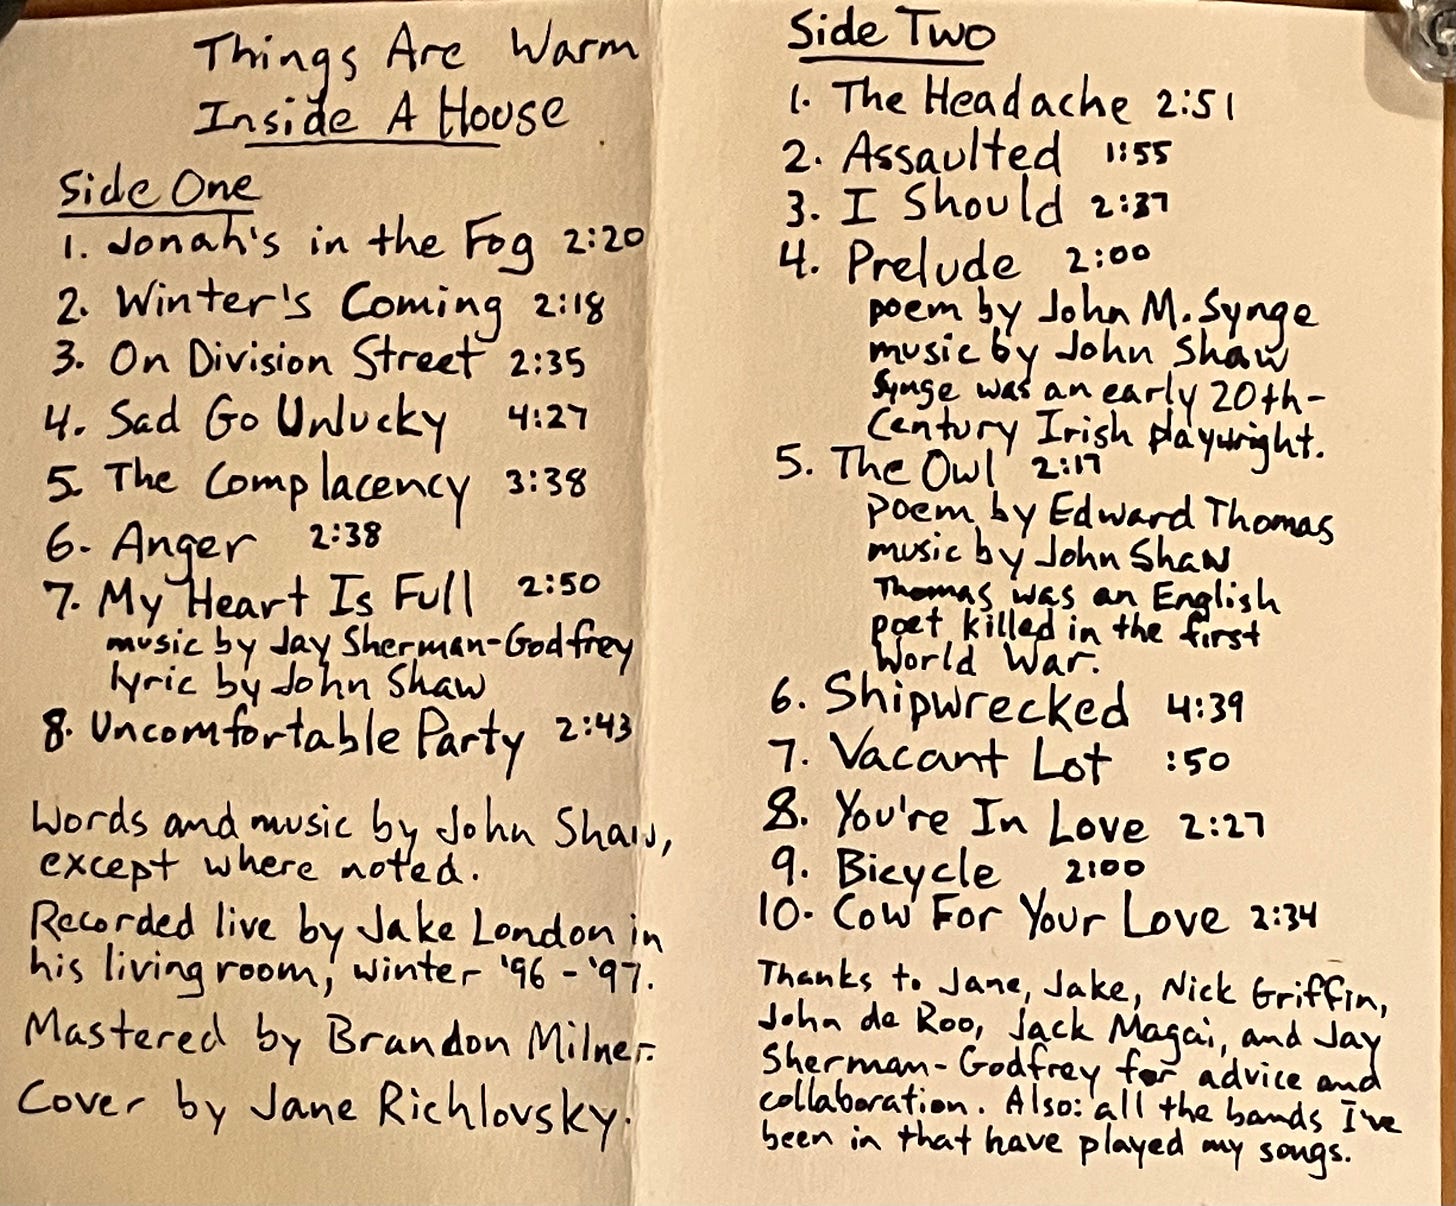 Things Are Warm
Inside A House
Side One
1. Jonah's in the Fog 2:20
2. Winter's Coming 2:18
3. On Division Street 2:35
4. Sad Go Unlucky 4:27
5. The Complacency 3:38
6. Anger 2:38
7. My Heart Is Full 2:50
music by Jay Sherman-Godfrey
lyric by John Shaw
8. Uncomfortable Party 2:43
Words and music by John Shaw,
except where noted.
Recorded live by Jake London in
his living room, winter '96-'97.
Mastered by Brandon Milner.
Cover by Jane Richlovsky.
Side Two
1. The Headache 2:51
2. Assaulted 1:55
3. I Should 2:37
4. Prelude 2:00
poem by John M. Synge
music by John Shaw
Synge was an early 20th-
Century Irish playwright.
5. The Owl 2:17
poem by Edward Thomas
music by John Shaw
Thomas was an English
poet killed in the first
World War.
6. Shipwrecked 4:39
7. Vacant Lot :50
8. You're In Love 2:27
9. Bicycle 2:00
10. Cow For Your Love 2:34
Thanks to Jane, Jake, Nick Griffin,
John de Roo, Jack Magai, and Jay
Sherman-Godfrey for advice and
collaboration. Also: all the bands I've
been in that have played my songs.